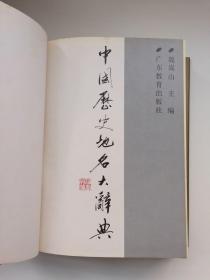 中國歷史地名大辭典
魏嵩山 主编
广东教育出版社